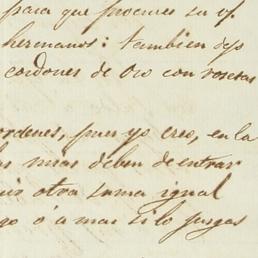 para que procures su
hermanos: tambien dejo
cordones de oro con rosetas
ordenes, pues yo creo, en la
mias deben de entrar
otra suma igual
o á mas si lo juzgas